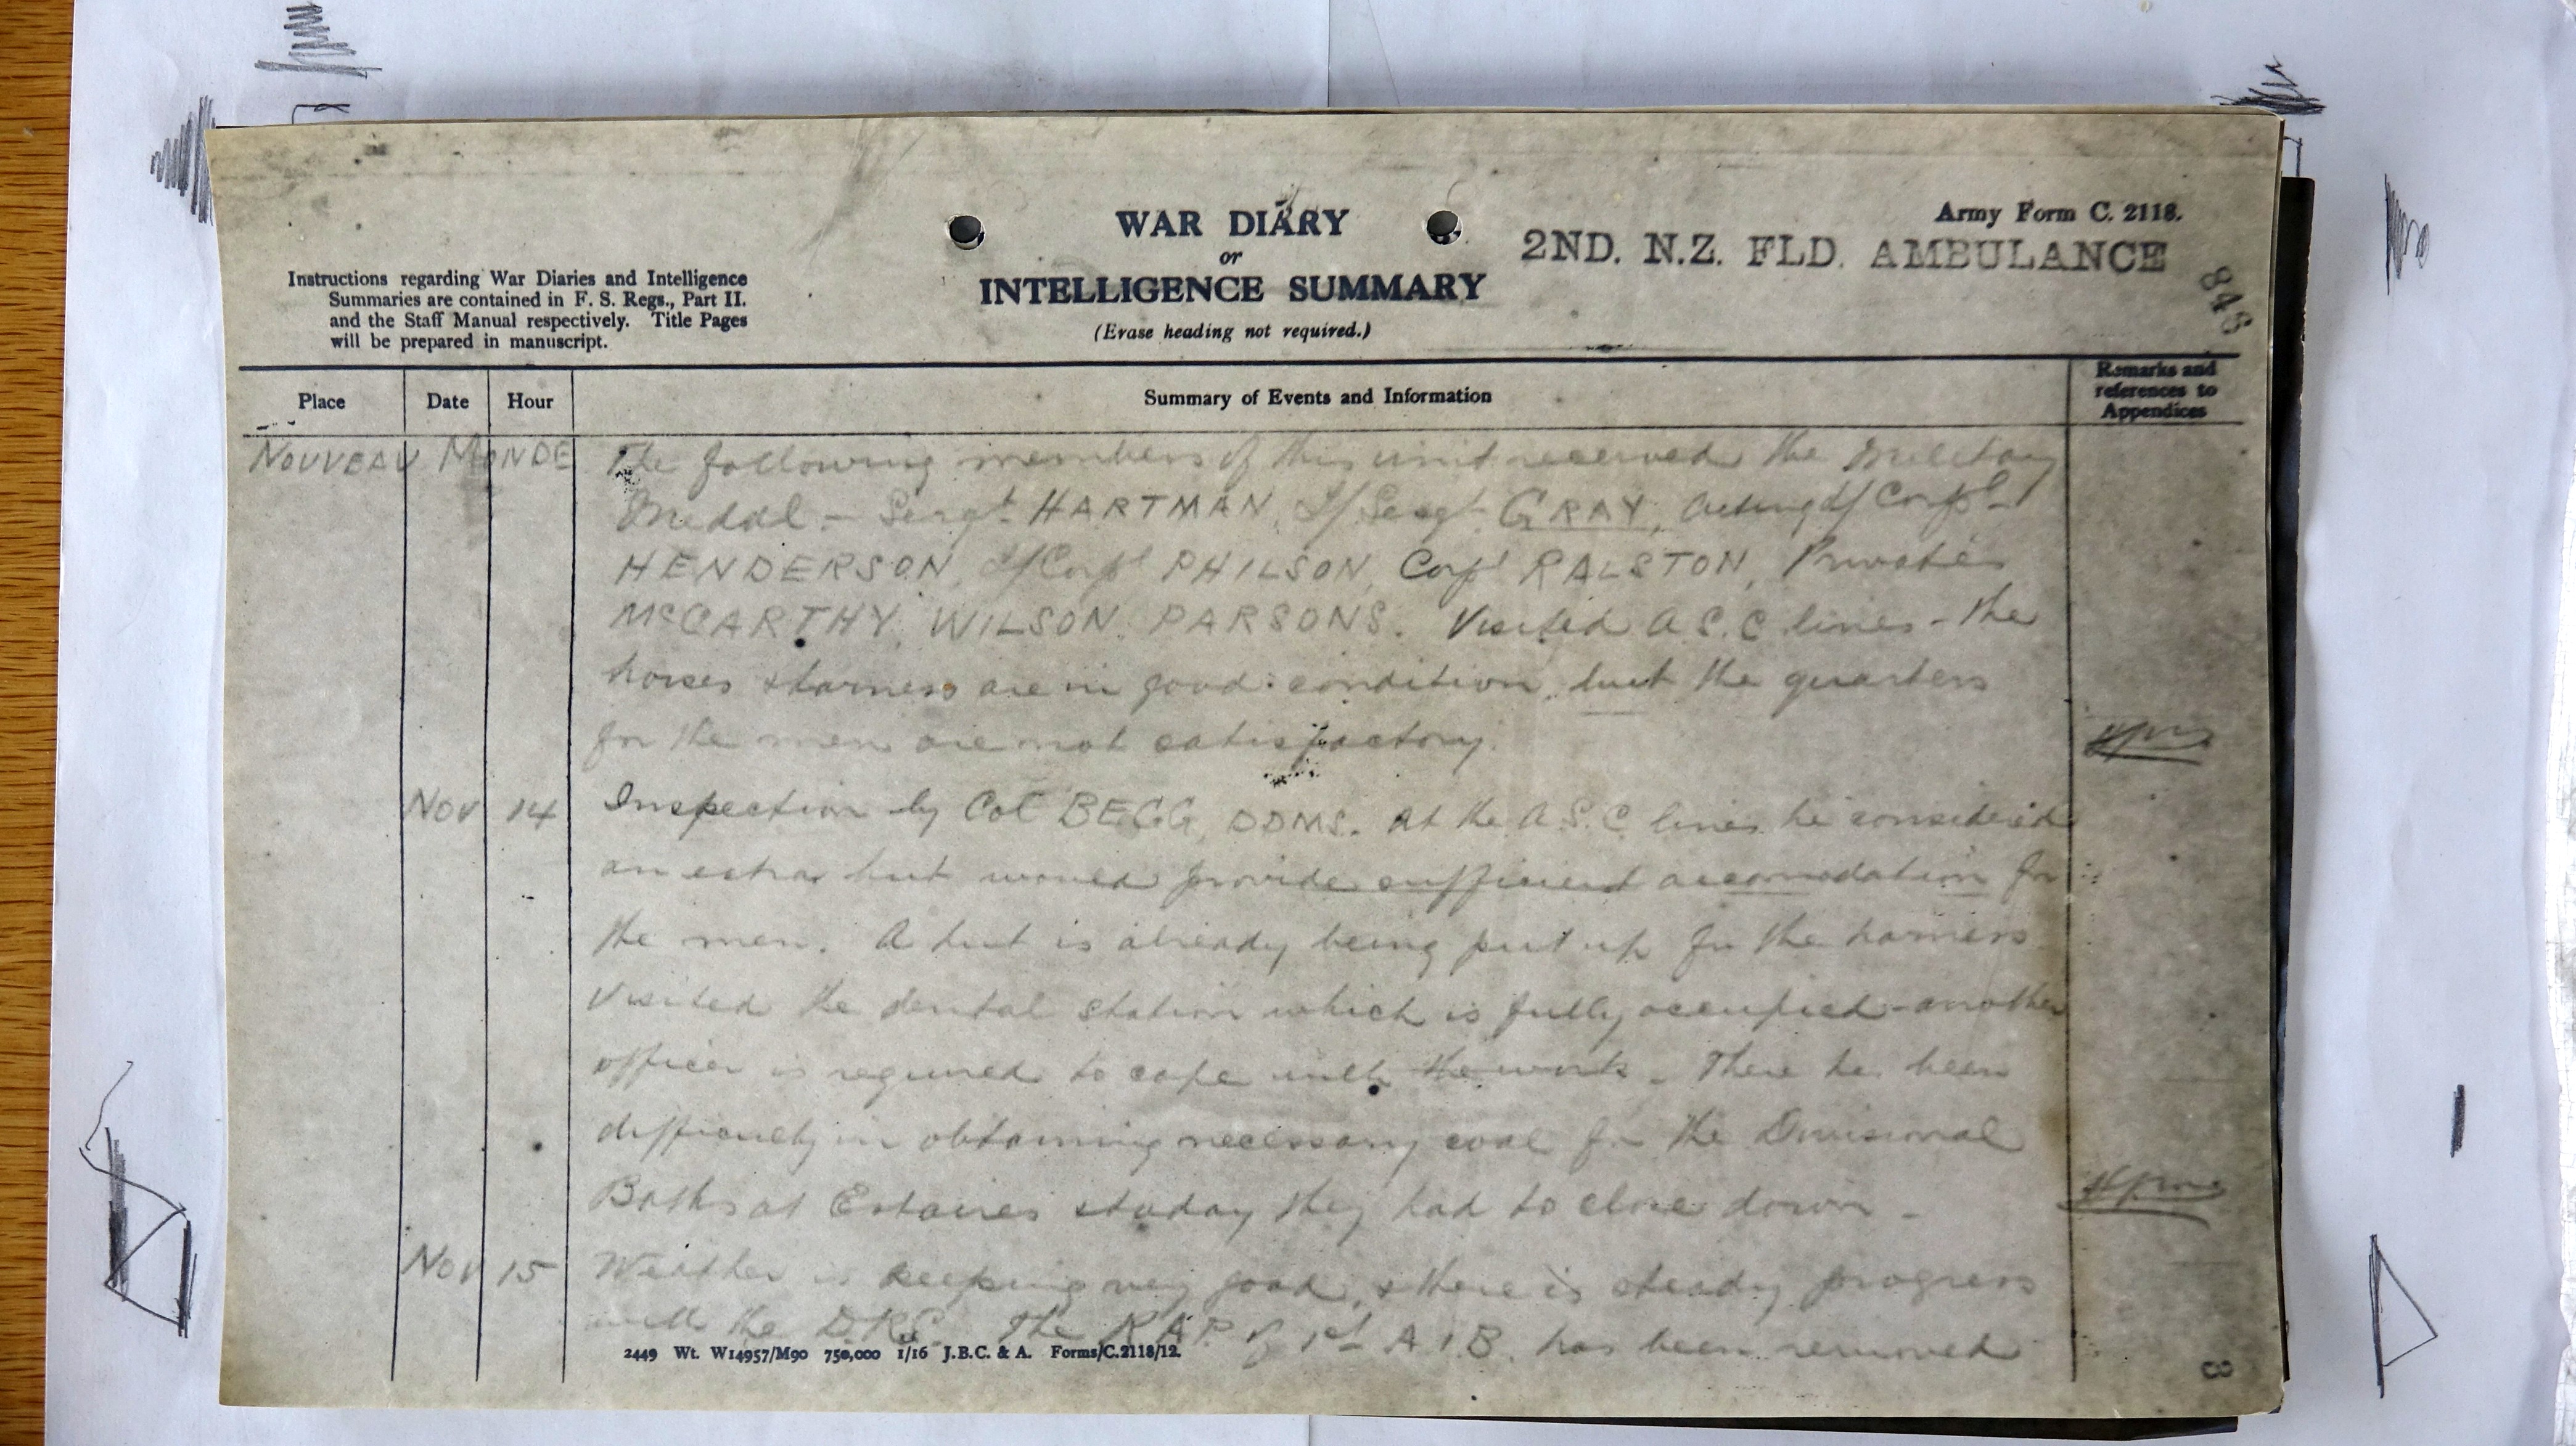 Army Form C. 2118.
WAR DIARY
or
INTELLIGENCE SUMMARY
(Erase heading not required.)
2ND. N.Z. FLD. AMBULANCE
846
Instructions regarding War Diaries and Intelligence
Summaries are contained in F. S. Regs., Part II.
and the Staff Manual respectively. Title Pages
will be prepared in manuscript.
Place Date Hour Summary of Events and Information
Remarks and
references to
Appendices
NOUVEAU MONDE The following members of this unit received the Military
Medal - Sergt HARTMAN, L/Sergt GRAY, Acting L/Corpl
HENDERSON, L/Corpl PHILSON, Corpl RALSTON, Privates
McCARTHY, WILSON, PARSONS. Visited A.S.C. lines - the
horses & harness are in good condition, but the quarters
for the men are not satisfactory.
Nov 14 Inspection by Col BEGG, DDMS. At the A.S.C. lines he considered
an extra hut would provide sufficient accomodation for
the men. A hut is already being put up for the harness
Visited the dental station which is fully occupied - another
officer is required to cope with the work. There has been
difficulty in obtaining necessary coal for the Divisional
Baths at Estaires & today they had to close down -
Nov 15 Weather is keeping very good, & there is steady progress
with the DRS. The RAP of 1st A.I.B. has been removed
2449 Wt. W14957/M90 750,000 1/16 J.B.C. & A. Forms/C.2118/12.
3